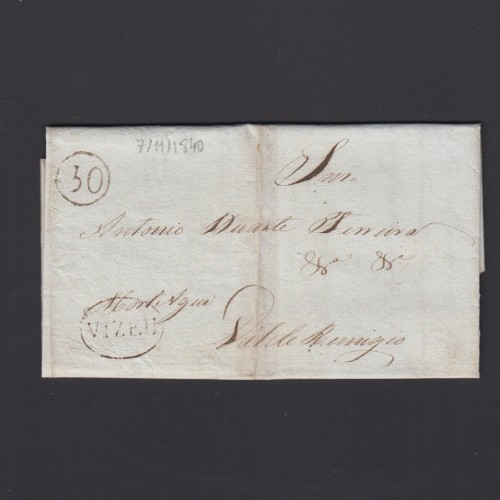 7/11/1840
30
Snr.
Antonio Duarte Ferreira
&ª &ª
Mort Agua
VIZEU
Val de Remigio